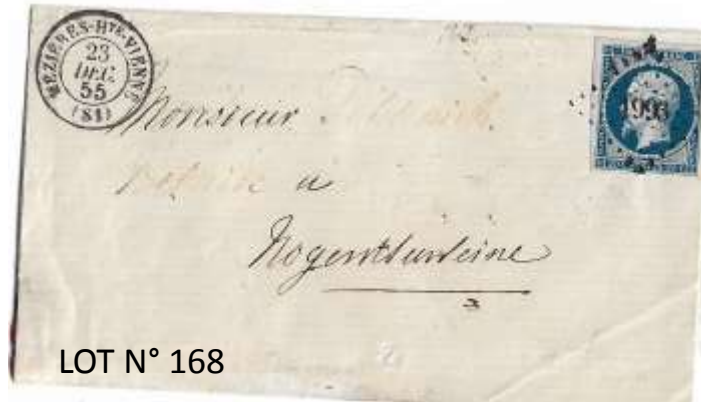 MÉZIÈRES-HTE-VIENNE
23
DEC.
55
(81)
1993
Monsieur
notaire a
Nogentsurseine
LOT N° 168